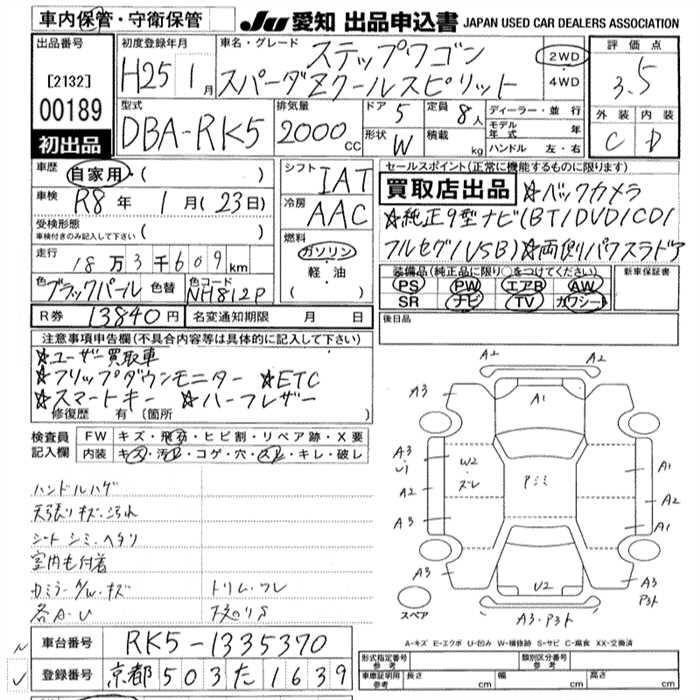 車内保管・守衛保管 JU 愛知 出品申込書 JAPAN USED CAR DEALERS ASSOCIATION
出品番号 [2132] 00189 初出品
初度登録年月 H25年 1月
車名・グレード ステップワゴン
スパーダZクールスピリット
2WD・4WD
評価点 3.5
外装 C 内装 D
型式 DBA-RK5
排気量 2000cc
ドア 5 形状 W
定員 8人 積載 kg
ディーラー・並行
モデル年式 年
ハンドル 左・右
車歴 自家用・( )
車検 R8年 1月(23日)
受検形態 車検付きのみ記入して下さい ( )
走行 18万3千609km
色 ブラックパール 色替 色コード NH812P
シフト IAT
冷房 AAC
燃料 ガソリン・軽油 ( )
セールスポイント(正常に機能するものに限ります)
買取店出品 ☆バックカメラ
☆純正9型ナビ(BT/DVD/CD/
フルセグ/USB)☆両側パワスラドア
装備品(純正品に限り○をつけてください) 新車保証書
PS PW エアB AW
SR ナビ TV カワシート
R券 13840円 名変通知期限 月 日
後日品
注意事項申告欄(不具合内容等は具体的に記入して下さい)
☆ユーザー買取車
☆フリップダウンモニター ☆ETC
☆スマートキー ☆ハーフレザー
修復歴 有(箇所 )
検査員記入欄
FW キズ・飛石・ヒビ割・リペア跡・X要
内装 キズ・汚れ・コゲ・穴・スレ・キレ・破レ
ハンドルハゲ
天張りキズ・汚れ
シート シミ・ヘタリ
室内毛付着
各A・U
A2 A2
A3 A1 A3
A3 W2 Pシミ A1
A2 ズレ A2
A3 A1
A3 U2 A3
スペア A3・Pヌケ
A-キズ E-エクボ U-凹み W-補修跡 S-サビ C-腐食 XX-交換済
車台番号 RK5-1335370
登録番号 京都503た1639
形式指定番号 参考 類別区分番号 参考
車庫証明用参考 長さ 幅 高さ